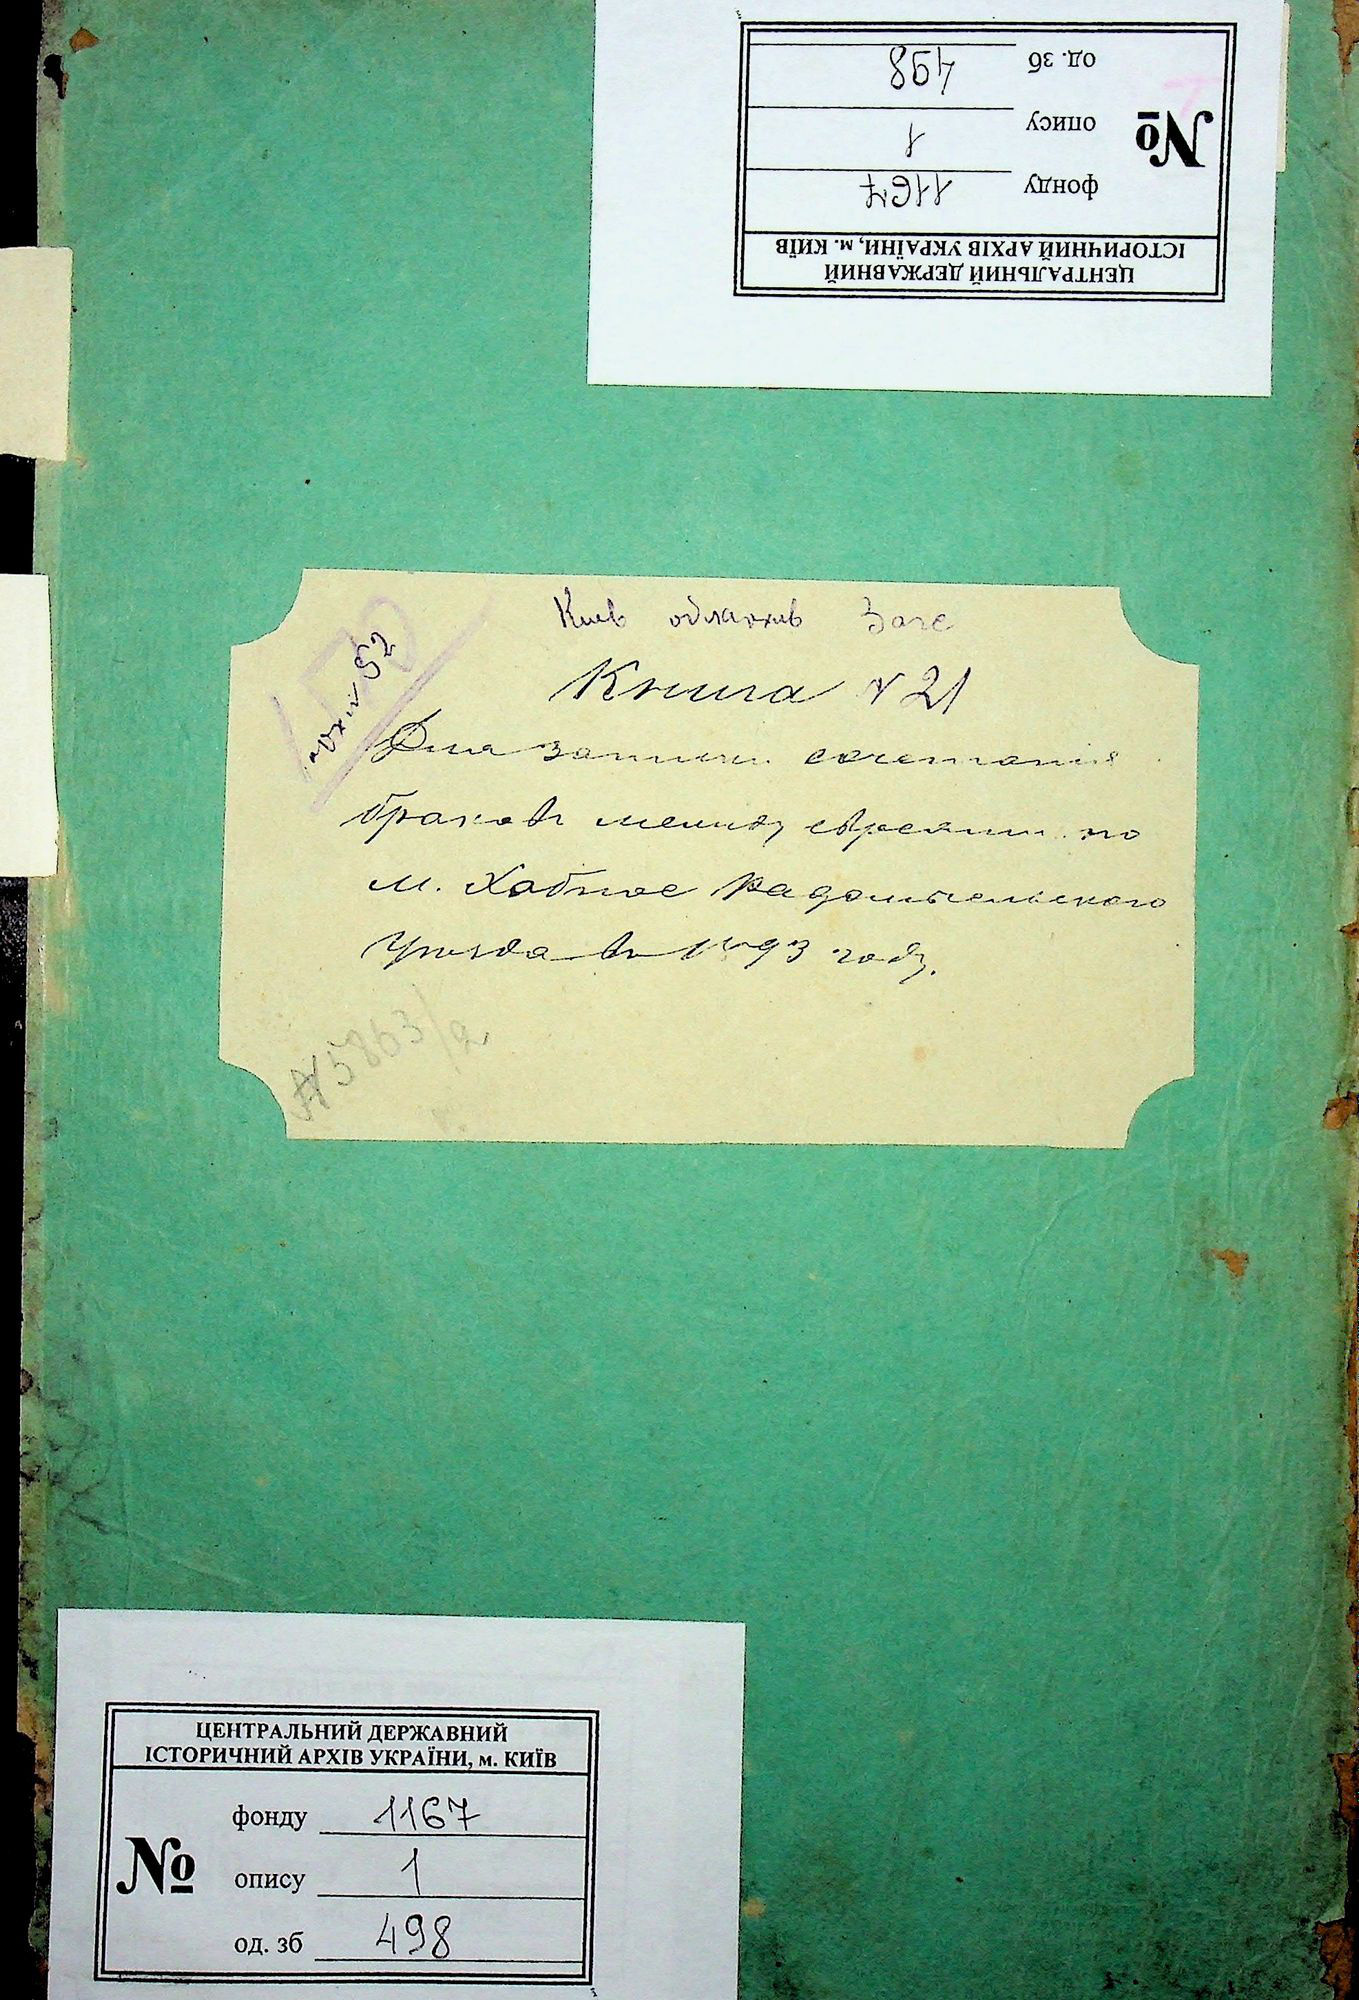 ЦЕНТРАЛЬНИЙ ДЕРЖАВНИЙ
ІСТОРИЧНИЙ АРХІВ УКРАЇНИ, м. КИЇВ
№
фонду 1167
опису 1
од. зб 498
Киев облархив Загс
Книга N 21
Для записи сочетания
браковъ между евреями по
м. Хабное Радомысльского
Уезда въ 1893 году.
N 5863/2
ЦЕНТРАЛЬНИЙ ДЕРЖАВНИЙ
ІСТОРИЧНИЙ АРХІВ УКРАЇНИ, м. КИЇВ
№
фонду 1167
опису 1
од. зб 498